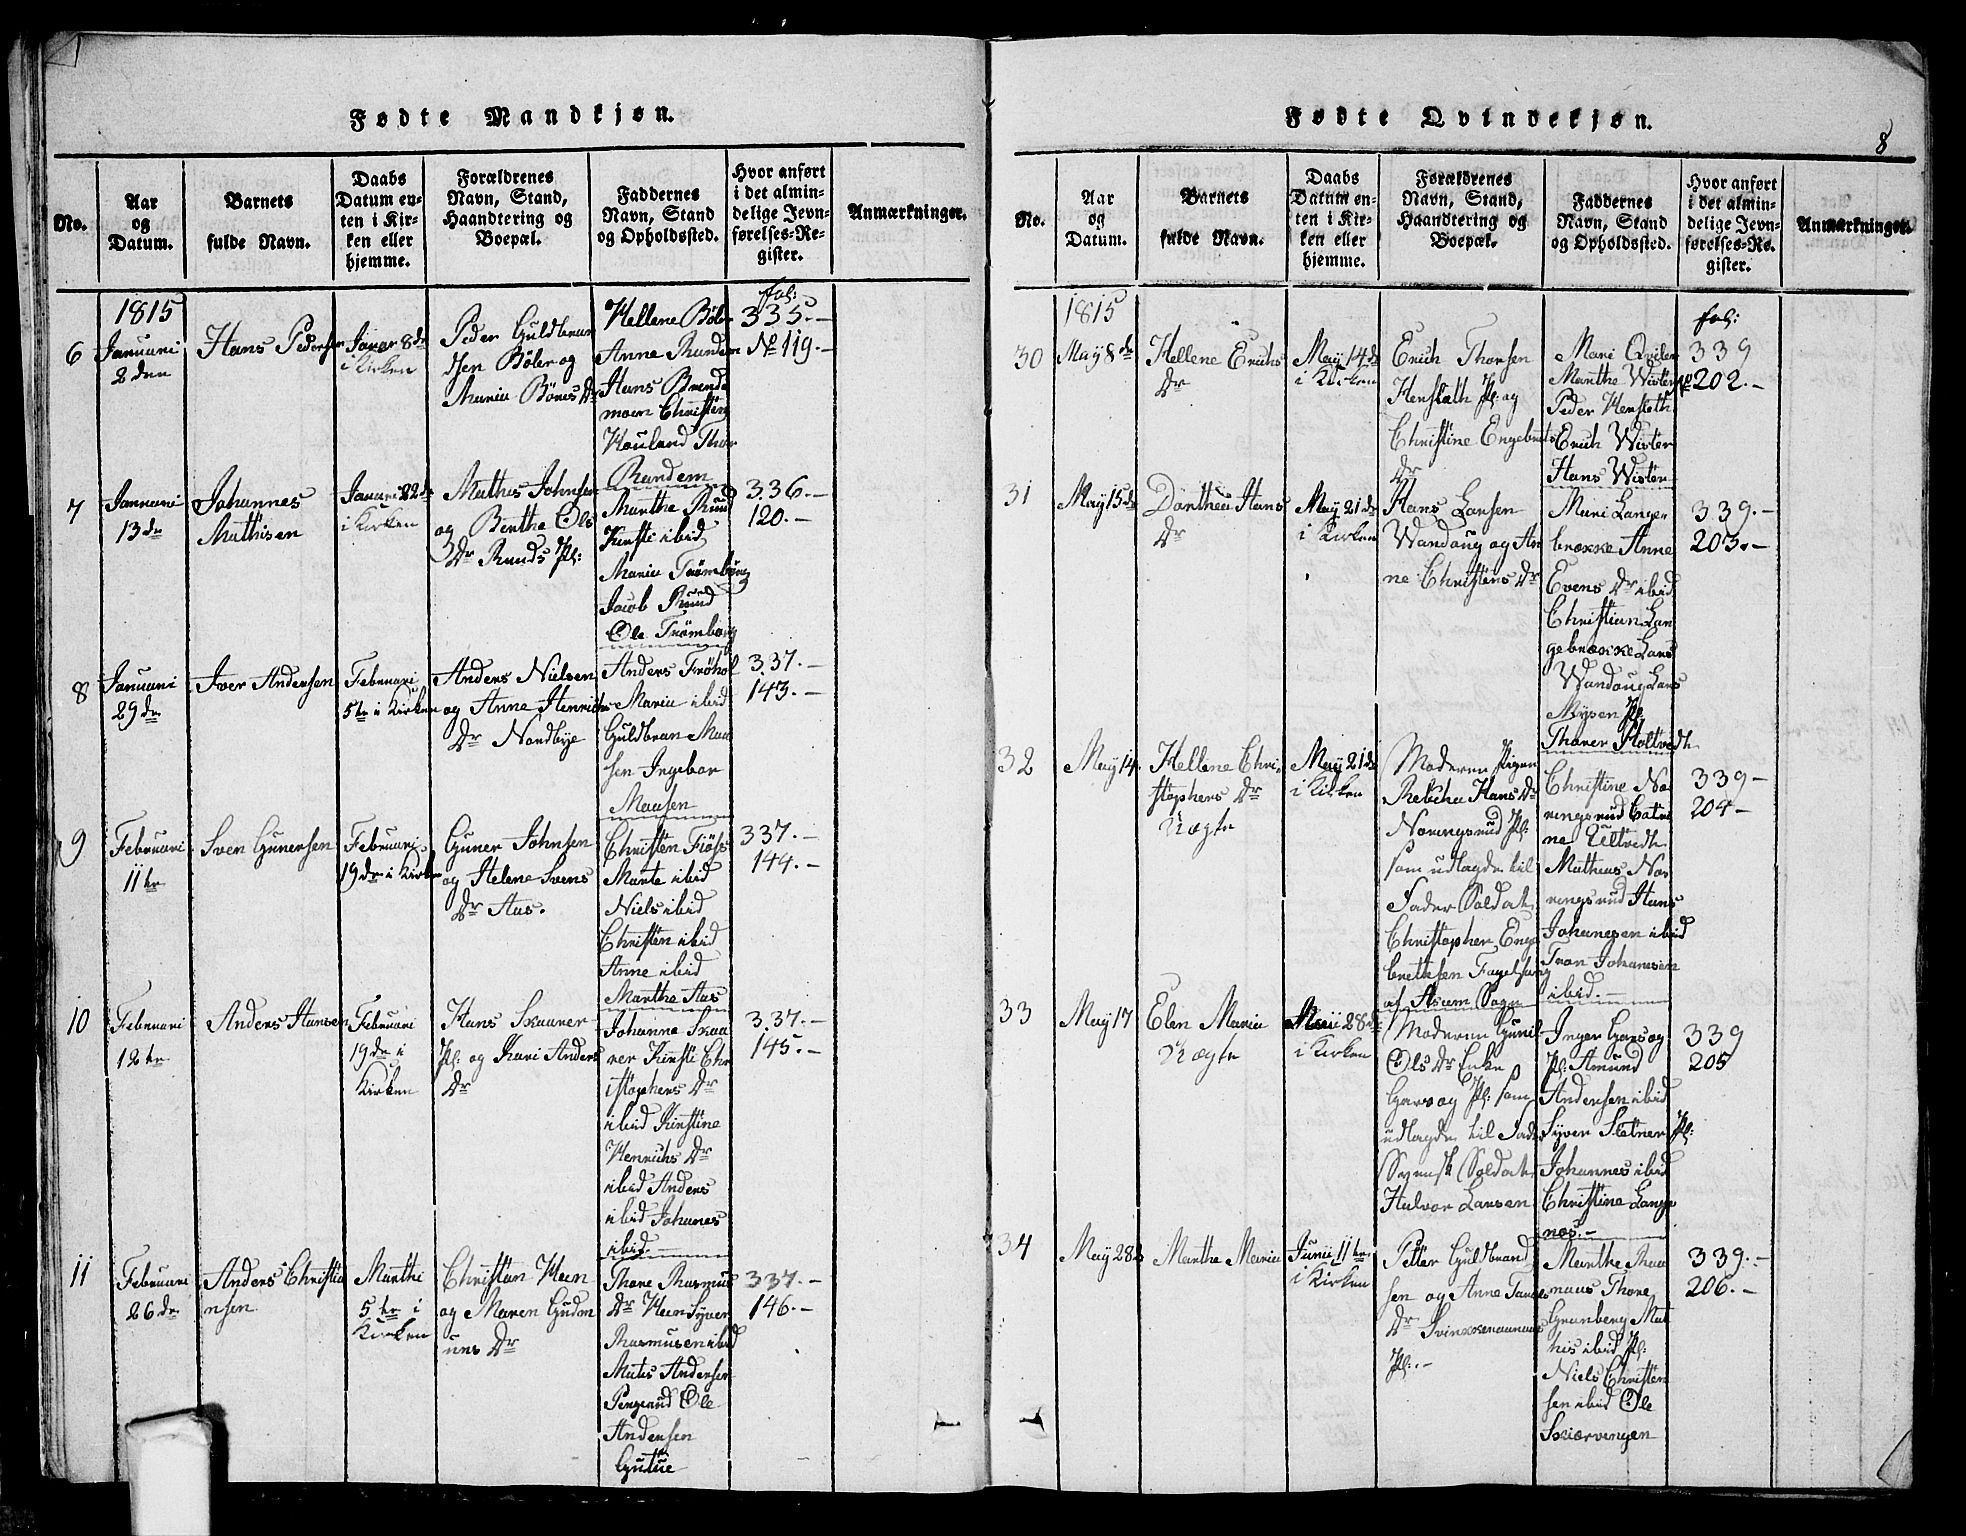 Fødte Mandkjøn.
No.
Aar
og
Datum.
Barnets
fulde Navn.
Daabs
Datum en-
ten i Kir-
ken eller
hjemme.
Forældrenes
Navn, Stand,
Haandtering og
Boepæl.
Faddernes
Navn, Stand
og Opholdssted.
Hvor anført
i det almin-
delige Jevn-
førelses-Re-
gister.
Anmærkninger.
1815
6
Januari
2den
Hans Pedersen
Januar 8de
i Kirken
Peder Guldbran
sen Böler og
Maria Böres Dr
Hellene Böler
Anne Rundem
Hans Brende
moen Christen
Houland Thor
Rundem
fol:
335.-
No 119.-
7
Januari
13de
Johannes
Mathisen
Januari 22de
i Kirken
Mathis Johnsen
og Berthe Ols
Dr Ruuds Pl:
Marthe Ruud
Kirsti ibid
Maria Trömborg
Jacob Ruud
Ole Trömborg
336.-
120.-
8
Januari
29de
Iver Andersen
Februari
5te i Kirken
Anders Nielsen
og Anne Henrichs
Dr Nordbye
Anders Fröhol
Maria ibid
Guldbran Maa
sen Ingebor
Maasen
337.-
143.-
9
Februari
11te
Sven Gunersen
Februari
19de i Kirken
Guner Johnsen
og Helene Svens
Dr Aas.
Christen
Marte ibid
Niels ibid
Christen ibid
Anne ibid
Marthe Aas
337.-
144.-
10
Februari
12te
Anders Hansen
Februari
19de i
Kirken
Hans Skaarer
Pl: og Kari Anders
Dr
Johanne Skaa
rer Kirsti Chr
istophers Dr
ibid Kirstine
Henrichs Dr
ibid Anders
ibid Johanes
ibid.
337.-
145.-
11
Februari
26de
Anders Christia
nsen
Marthi
5te i
Kirken
Christian Heen
og Maren Gudm
uns Dr
Thore Rasmus
Dr Heen Syver
Rasmusen ibid
Mates Andersen
Pengerud Ole
Andersen
337.-
146.-
Fødte Qvindekjøn.
8
No.
Aar
og
Datum.
Barnets
fulde Navn.
Daabs
Datum en-
ten i Kir-
ken eller
hjemme.
Forældrenes
Navn, Stand,
Haandtering og
Boepæl.
Faddernes
Navn, Stand
og Opholdssted.
Hvor anført
i det almin-
delige Jevn-
førelses-Re-
gister.
Anmærkninger.
1815
30
May 8de
Hellene Erichs
Dr
May 14de
i Kirken
Erich Thorsen
Hersleth Pl: og
Christine Engebrets
Dr
Mari Qviler
Marthe Wister
Peder Hersleth
Erich Wister
Hans Wister
fol:
339
No 202.-
31
May 15de
Dorthea Hans
Dr
May 21de
i Kirken
Hans Larsen
Wandoug og An
ne Christens Dr
Mari Lange
brække Anne
Evens Dr ibid
Christian Lan
gebrække Lars
Wandoug Lars
Mysen Pl:
Thorer Holtvedt
339.-
203.-
32
May 14.
Hellene Chri-
stophers Dr
Uægte
May 21de
i Kirken
Moderen Pigen
Rebecha Hans Dr
Noringsrud Pl:
som udlagde til
Fader Soldat
Christopher Enge
bretsen Fagelsang
af Askim Sogn
Christine No
ringsrud Catri
ne Ultvedt
Matheus No
ringsrud Hans
Johanesen ibid
Tron Johanesen
ibid.
339-
204-
33
May 17
Elen Maria
Uægte
Maii 28de
i Kirken
Moderen Gunil
Ols Dr Enke
Garsog Pl: som
udlagde til Fader
Svensk Soldat
Halvor Larsen
Inger Garsog
Pl: Amund
Andersen ibid
Syver Sletner Pl:
Johannes ibid
Christine Lange
næs.-
339
205
34
May 28de
Marthe Maria
Junii 11te
i Kirken
Petter Guldbrand
sen og Anne
Dr
Pl:.-
Marthe Raa
naas Thore
Granberg Mat
his ibid Pl:
Niels Christen
sen ibid Ole
Skiærvengen
339.-
206.-